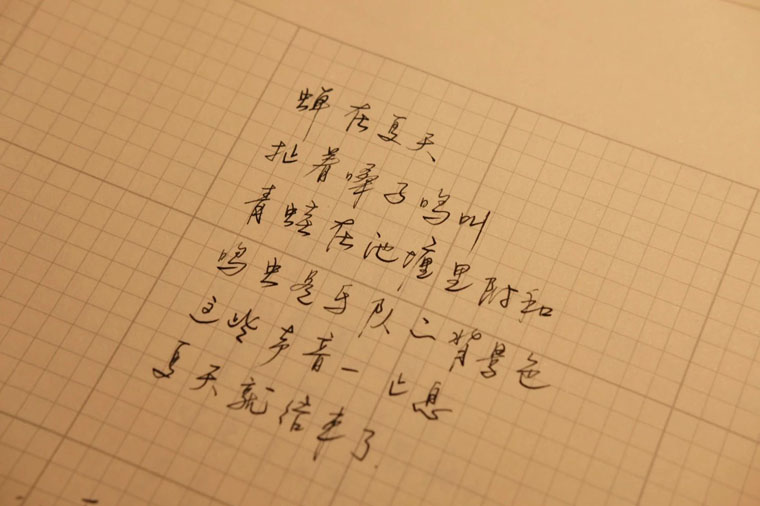 蝉在夏天
扯着嗓子鸣叫
青蛙在池塘里附和
鸣虫是乐队的背景色
这些声音一止息
夏天就结束了